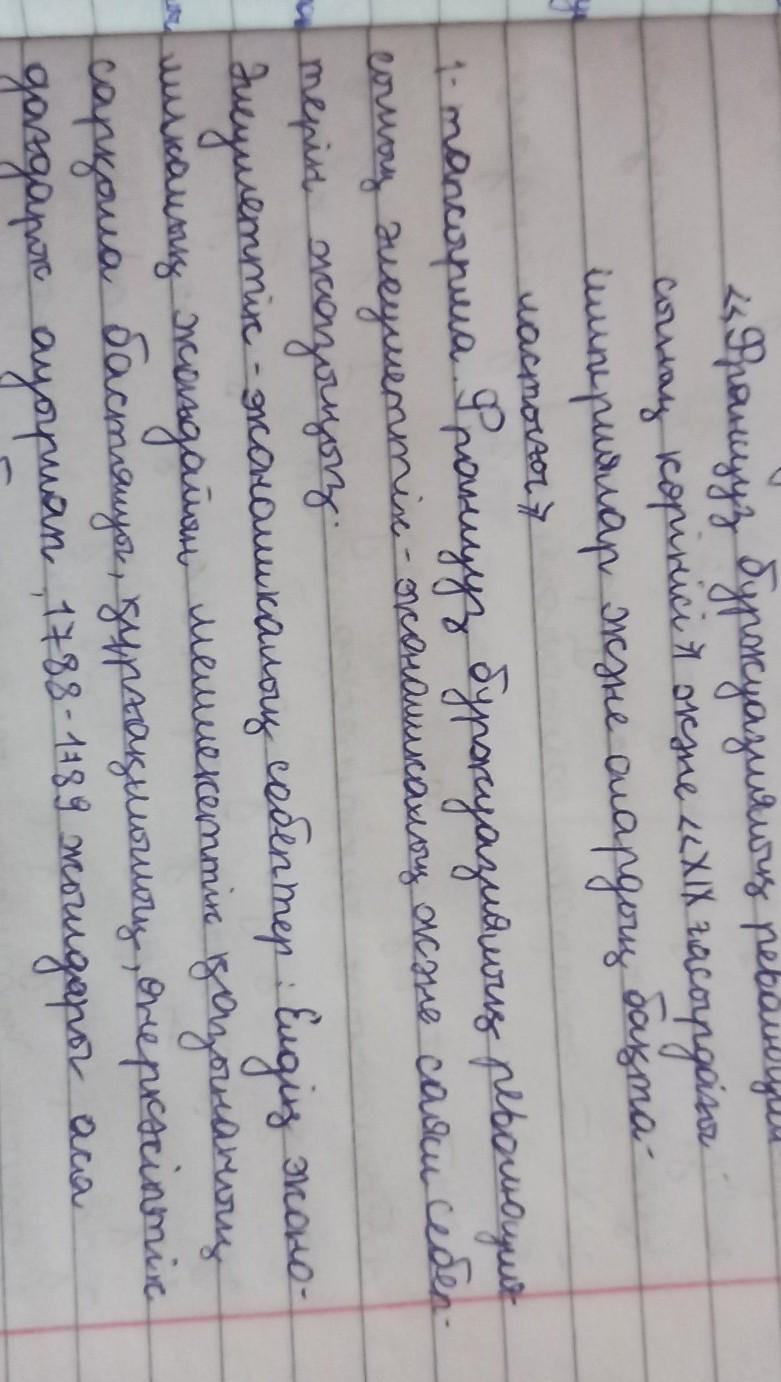 «Француз буржуазиялық революция
сының көрінісі» және «XIX ғасырдағы
империялар және олардың бақта-
ластығы»
1-тапсырма. Француз буржуазиялық революция-
сының әлеуметтік-экономикалық және саяси себеп-
терін жазыңыз.
Әлеуметтік-экономикалық себептер: Елдің эконо-
микалық жағдайын мемлекеттік қазынаның
сарқыла бастауы, құрғақшылық, өнеркәсіптік
дағдарыс ауырлап, 1788-1789 жылдары аса